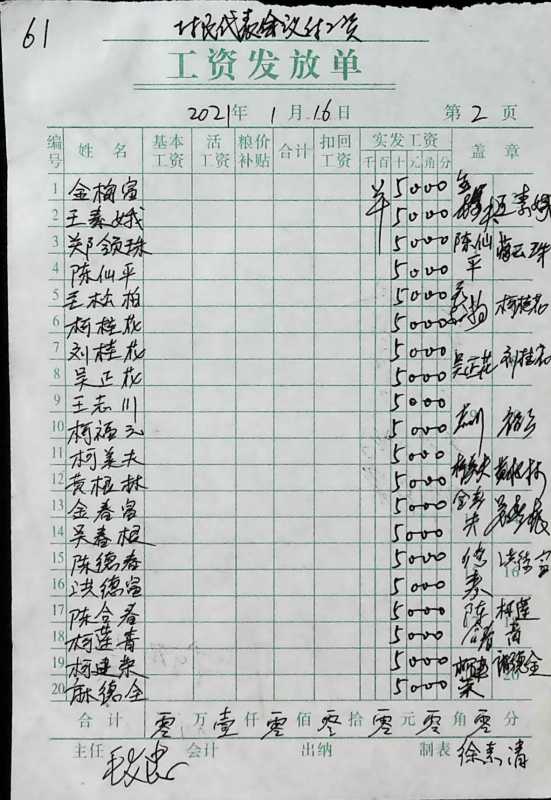 61
村民代表会议误工资
工资发放单
2021年 1月16日 第2页
编号 姓名 基本工资 活工资 粮价补贴 合计 扣回工资 实发工资 千百十元角分 盖章
1 金梅富 ¥ 5000
2 王素娥 5000 王素娥
3 郑领珠 5000
4 陈仙平 5000 陈仙平
5 王松柏 5000
6 柯桂花 5000 柯桂花
7 刘桂花 5000 刘桂花
8 吴正花 5000 吴正花
9 王志川 5000
10 柯福元 5000
11 柯美夫 5000 柯美夫
12 黄根林 5000 黄根林
13 金春富 5000
14 吴春根 5000
15 陈德春 5000
16 洪德富 5000 洪德富
17 陈合春 5000
18 柯莲青 5000 柯莲青
19 柯建荣 5000 柯建荣
20 德全 5000 德全
合计 零万壹仟零佰零拾零元零角零分
主任 会计 出纳 制表 徐素清